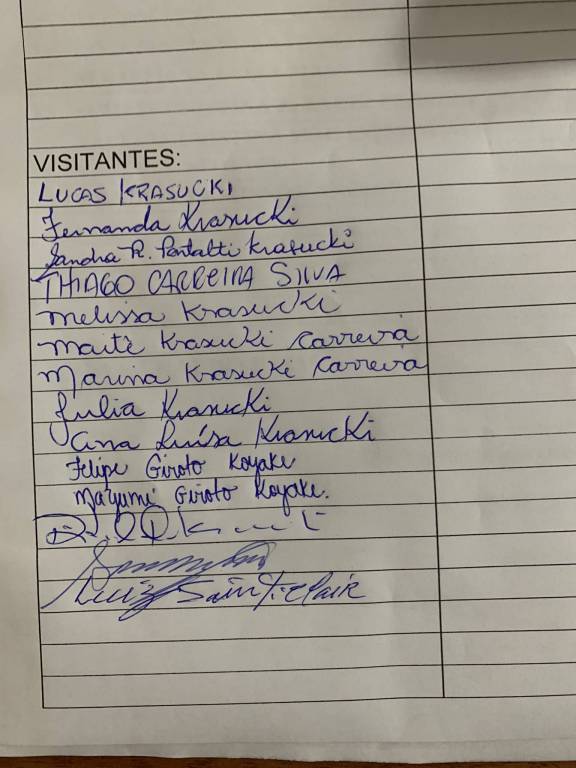 VISITANTES:
LUCAS KRASUCKI
Fernanda Krasucki
Sandra R. Pontalti Krasucki
THIAGO CARREIRA SILVA
Melissa Krasucki
Maitê Krasucki Carreira
Marina Krasucki Carreira
Julia Krasucki
Ana Luísa Krasucki
Felipe Giroto Koyake
Mayumi Giroto Koyake.
Luiz Saint-Clair